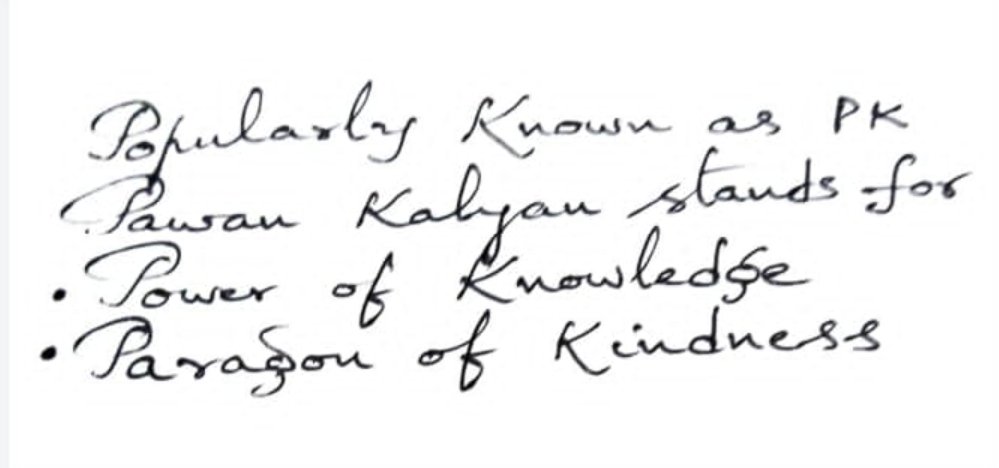 Popularly Known as PK
Pawan Kalyan stands for
• Power of Knowledge
• Paragon of Kindness